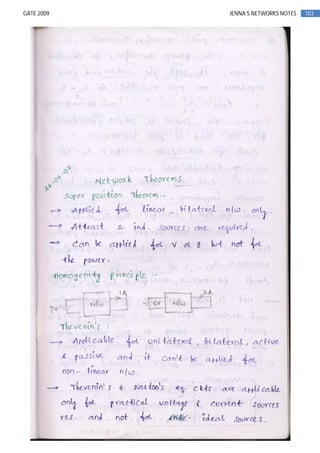 GATE 2009 JENNA'S NETWORKS NOTES 103
Network Theorems
Super position Theorem:-
→ Applied for linear, bilateral n/w. only.
→ Atleast 2 ind. sources are required.
→ Can be applied for V or I but not for
the power.
Homogenity principle :-
1A 2A
3V n/w 6V n/w
Thevenin's :
→ Applicable for unilateral, bilateral, active
& passive and it can't be applied for
non-linear n/w.
→ Thevenin's & Norton's eq. ckts are applicable
only for practical voltage & current sources
res. and not for ideal sources.